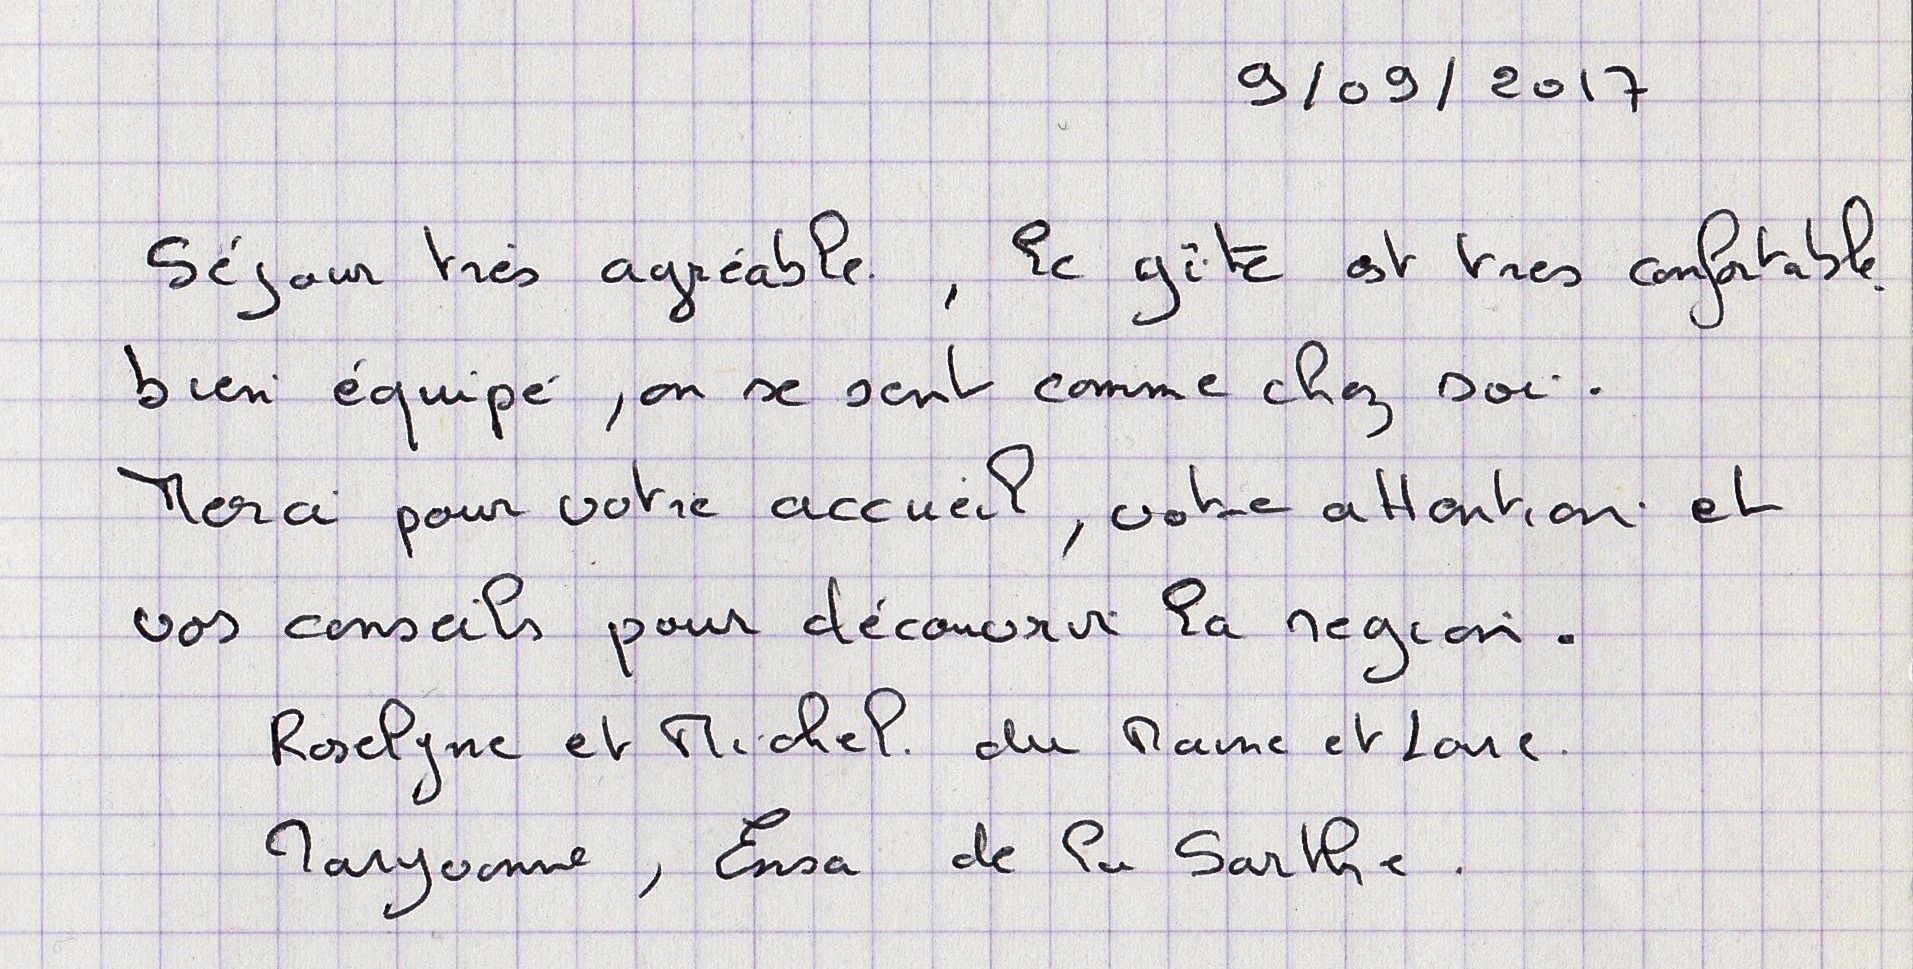 9/09/2017
Séjour très agréable, le gîte est tres confortable.
bien équipé, on se sent comme chez soi.
Merci pour votre accueil, votre attention et
vos conseils pour découvrir la region.
Roselyne et Michel. du Maine et Loire.
Maryvonne, Ensa de la Sarthe.